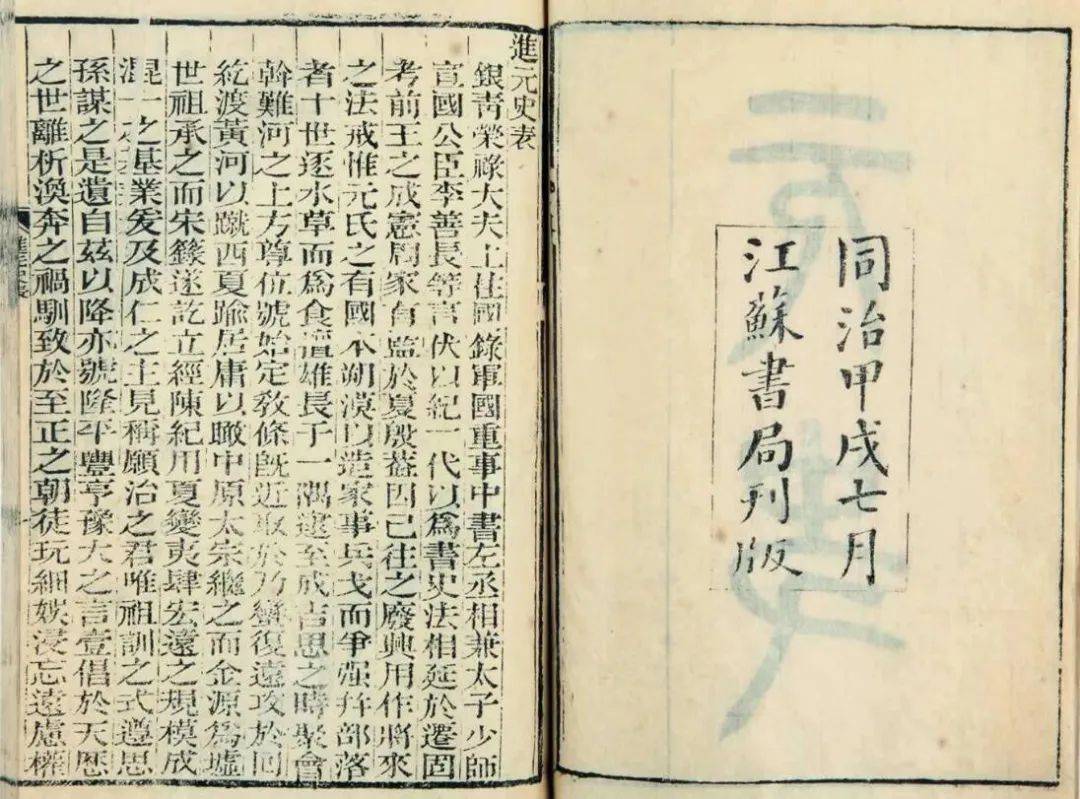 同治甲戌七月
江蘇書局刊版
進元史表
銀靑榮祿大夫上柱國錄軍國重事中書左丞相兼太子少師
宣國公臣李善長等言伏以紀一代以爲書史法相延於遷固
考前王之成憲周家有監於夏殷葢因已往之廢興用作將來
之法戒惟元氏之有國本朔漠以造家事兵戈而爭强幷部落
者十世逐水草而爲食遣雄長于一隅逮至成吉思之時聚會
斡難河之上方尊位號始定敎條旣近取於乃蠻復遠攻於回
紇渡黃河以蹴西夏踰居庸以瞰中原太宗繼之而金源爲墟
世祖承之而宋籙遂訖立經陳紀用夏變夷肆宏遠之規模成
混一之基業爰及成仁之主見稱願治之君唯祖訓之式遵思
孫謀之是遺自茲以降亦號隆平豐亨豫大之言壹倡於天歷
之世離析渙奔之禍馴致於至正之朝徒玩細娛浸忘遠慮權